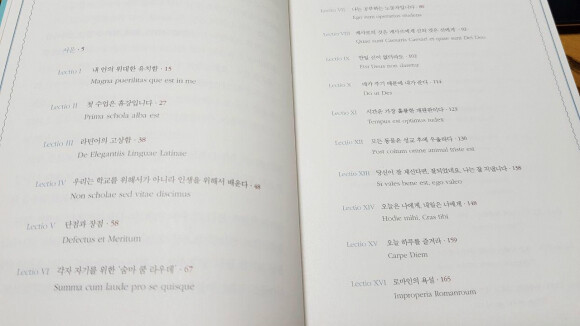 서문 · 9
Lectio I 내 안의 위대한 유치함 · 15
Magna puerilitas que est in me
Lectio II 첫 수업은 휴강입니다 · 27
Prima schola alba est
Lectio III 라틴어의 고상함 · 38
De Elegantiis Linguae Latinae
Lectio IV 우리는 학교를 위해서가 아니라 인생을 위해서 배운다 · 48
Non scholae sed vitae discimus
Lectio V 단점과 장점 · 58
Defectus et Meritum
Lectio VI 각자 자기를 위한 '숨마 쿰 라우데' · 67
Summa cum laude pro se quisque
Lectio VII 나는 공부하는 노동자입니다 ·
Ego sum operarius studens
Lectio VIII 카이사르의 것은 카이사르에게 신의 것은 신에게 ·
Quae sunt Caesaris Caesari et quae sunt Dei Deo
Lectio IX 만일 신이 없더라도 ·
Etsi Deus non daretur
Lectio X 네가 주기 때문에 내가 준다 · 114
Do ut Des
Lectio XI 시간은 가장 훌륭한 재판관이다 · 123
Tempus est optimus iudex
Lectio XII 모든 동물은 성교 후에 우울하다 · 130
Post coitum omne animal triste est
Lectio XIII 당신이 잘 계신다면, 잘되었네요, 나는 잘 지냅니다 · 138
Si vales bene est, ego valeo
Lectio XIV 오늘은 나에게, 내일은 너에게 · 148
Hodie mihi, Cras tibi
Lectio XV 오늘 하루를 즐겨라 · 159
Carpe Diem
Lectio XVI 로마인의 욕설 · 165
Improperia Romanorum